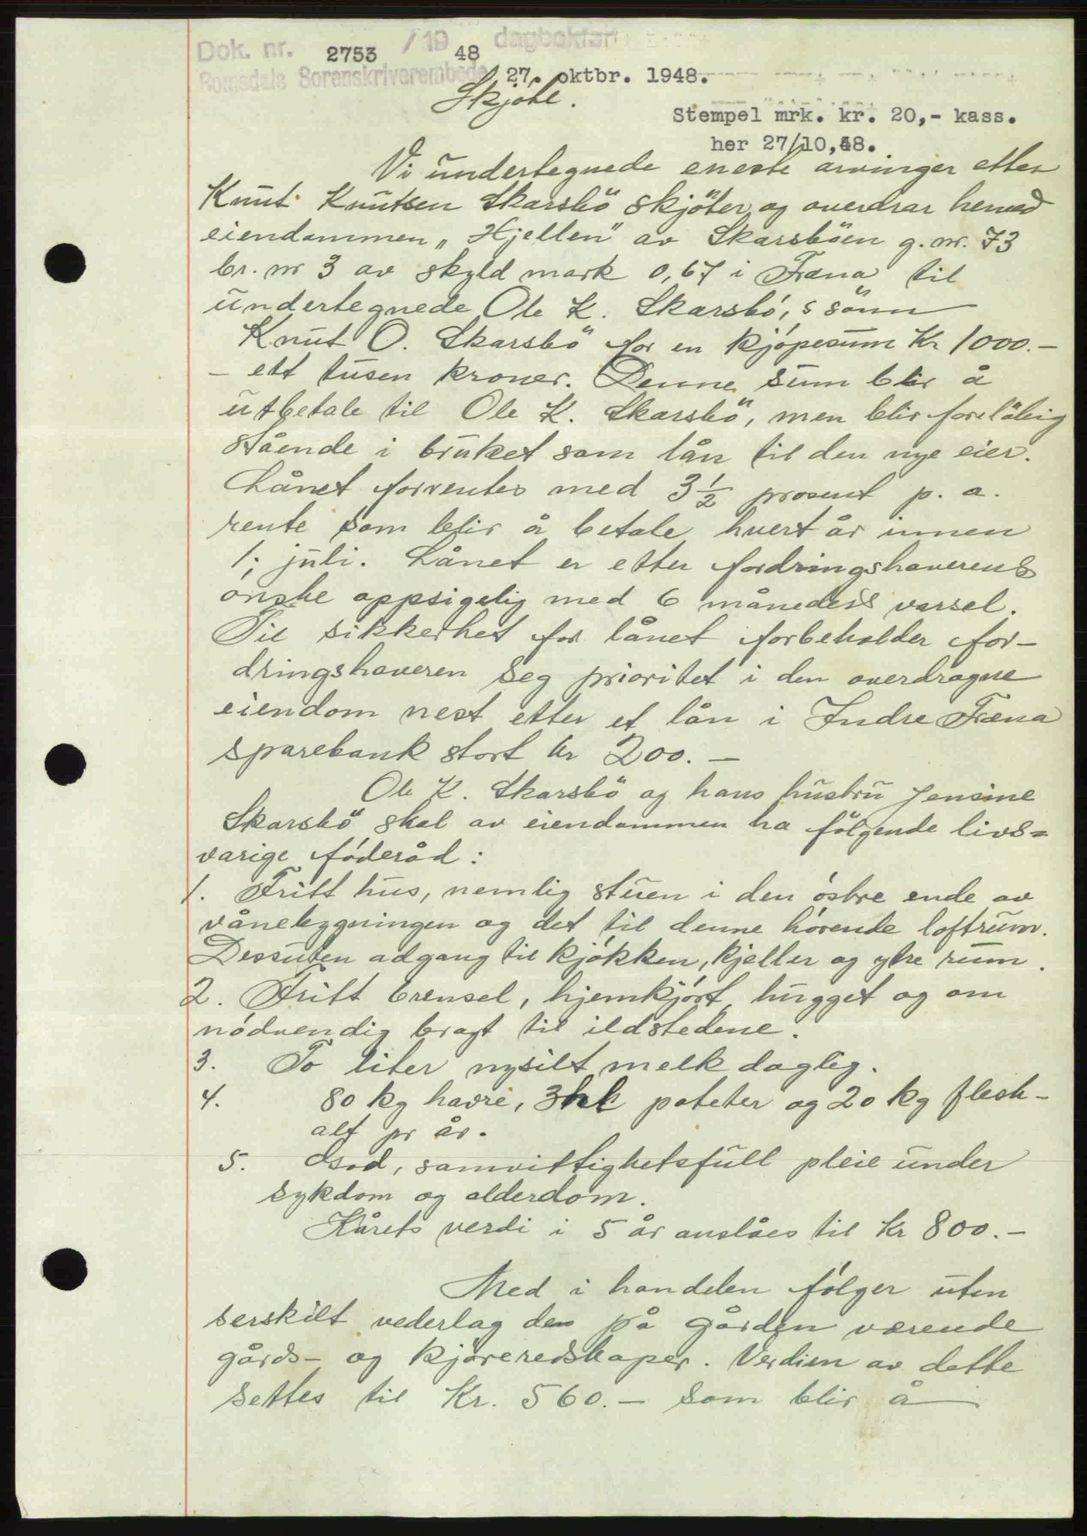 Dok. nr. 2753 / 19 48 dagbokført
Romsdals Sorenskriverembede 27. oktbr. 1948.
Skjöte.
Stempel mrk. kr. 20,- kass.
her 27/10,48.
Vi undertegnede eneste arvinger etter
Knut Knutsen Skarsbö skjöter og overdrar herved
eiendommen „Hjellen" av Skarsböen g. nr. 73
br. nr 3 av skyld mark 0,67 i Fræna til
undertegnede Ole K. Skarsbö,s sönn
Knut O. Skarsbö for en kjöpesum Kr 1000.-
- ett tusen kroner. Denne sum blir å
utbetale til Ole K. Skarsbö, men blir forelöbig
stående i bruket som lån til den nye eier.
Lånet forrentes med 3 1/2 prosent p. a.
rente som blir å betale hvert år innen
1. juli. Lånet er etter fordringshaverens
önske oppsigelig med 6 måneders varsel.
Til sikkerhet for lånet forbeholder for-
dringshaveren seg prioritet i den overdragne
eiendom nest etter et lån i Indre Fræna
sparebank stort kr 200.-
Ole K. Skarsbö og hans hustru Jensine
Skarsbö skal av eiendommen ha fölgende livs=
varige föderåd:
1. Fritt hus, nemlig stuen i den östre ende av
vånebygningen og det til denne hörende loftrum.
Dessuten adgang til kjökken, kjeller og ytre rum.
2. Fritt brensel, hjemkjört, hugget og om
nödvendig bragt til ildstedene.
3. To liter nysilt melk daglig.
4. 80 kg havre, 3 hl poteter og 20 kg flesk-
alt pr år.
5. God, samvittighetsfull pleie under
sykdom og alderdom.
Kårets verdi i 5 år anslåes til kr 800.-
Med i handelen fölger uten
serskilt vederlag den på gården værende
gårds- og kjöreredskaper. Verdien av dette
settes til Kr. 560.- som blir å